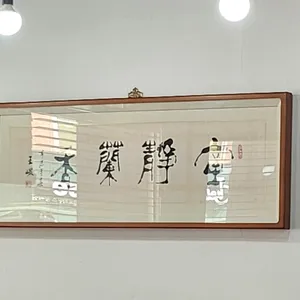 室靜蘭香